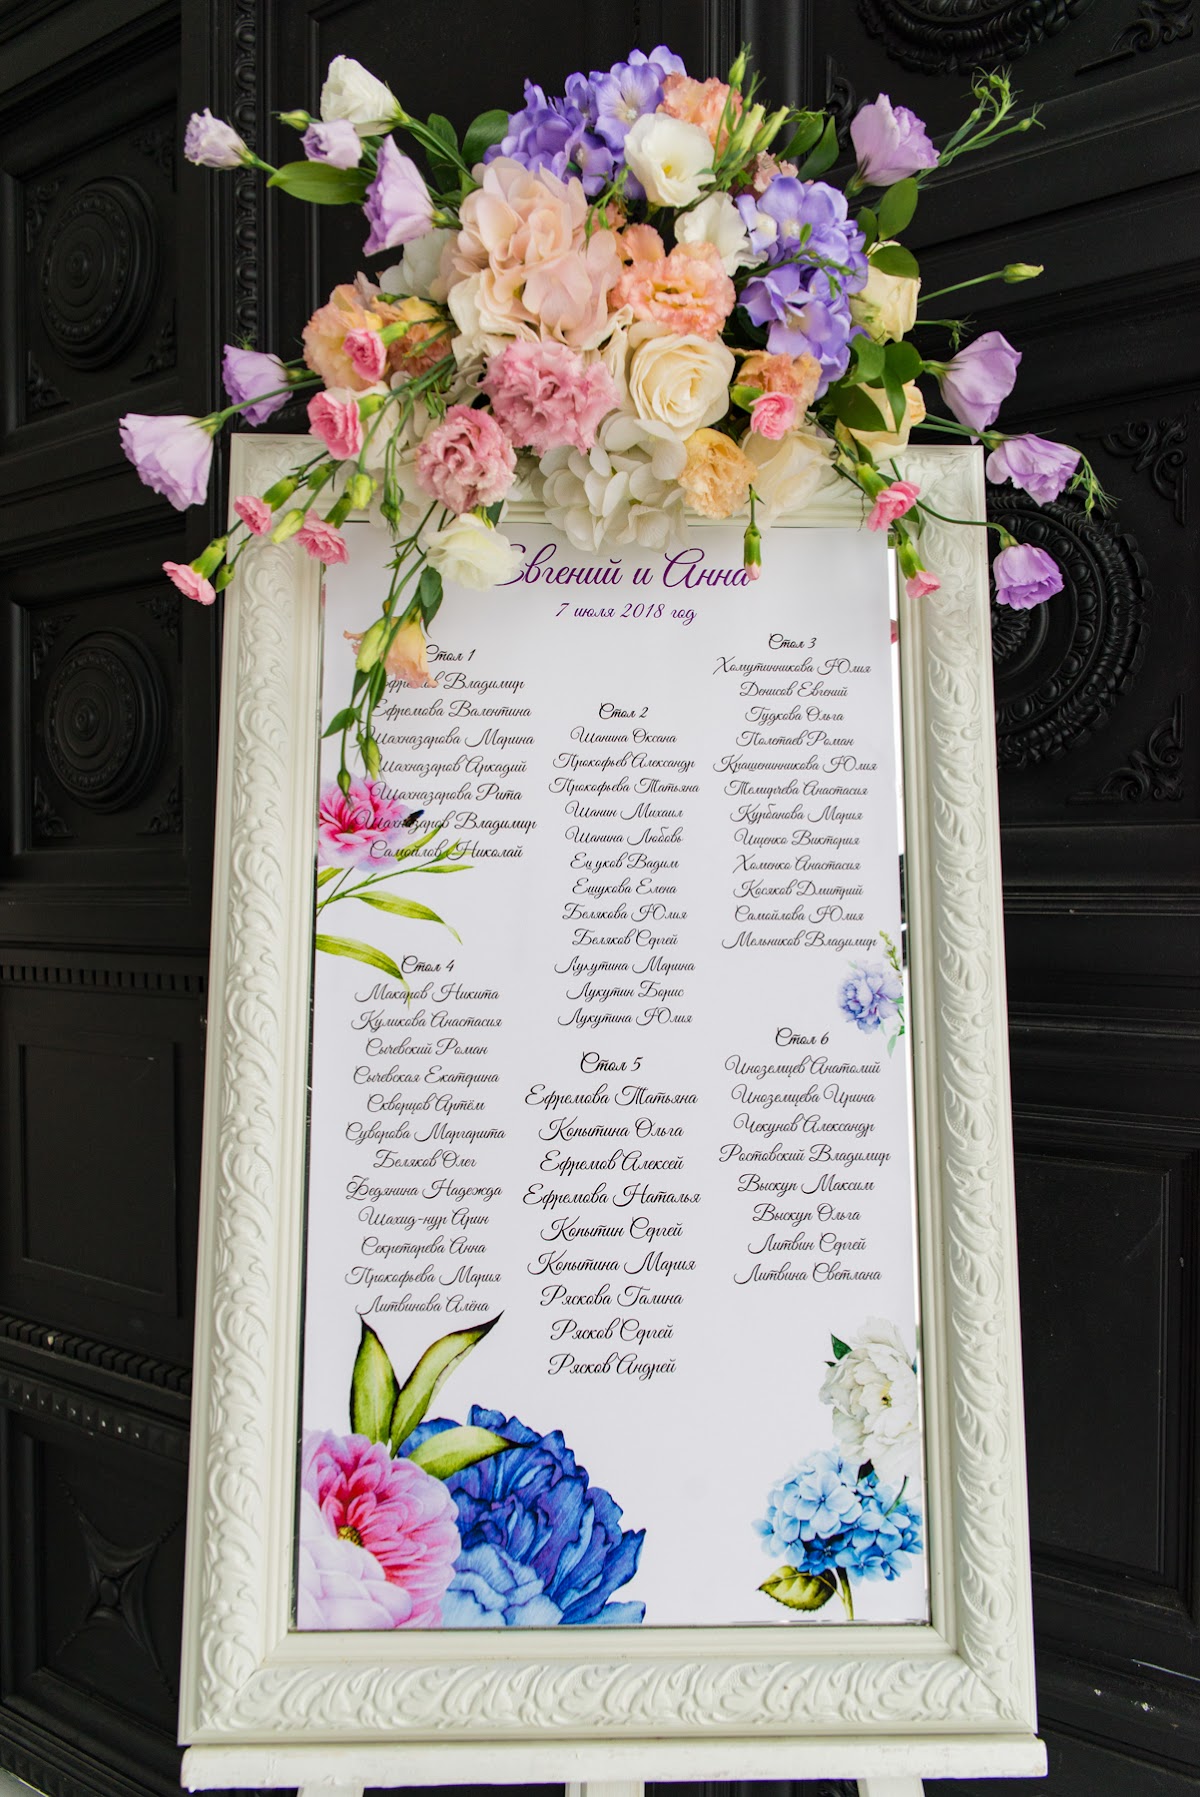 Евгений и Анна
7 июля 2018 год
Стол 1
Ефремов Владимир
Ефремова Валентина
Шахназарова Марина
Шахназаров Аркадий
Шахназарова Рита
Шахназаров Владимир
Самойлов Николай
Стол 2
Шанина Оксана
Прокофьев Александр
Прокофьева Татьяна
Шанин Михаил
Шанина Любовь
Ецуков Вадим
Ешукова Елена
Белякова Юлия
Беляков Сергей
Лукутина Марина
Лукутин Борис
Лукутина Юлия
Стол 3
Хомутинникова Юлия
Денисов Евгений
Гудкова Ольга
Полетаев Роман
Крашенинникова Юлия
Темирчева Анастасия
Курбанова Мария
Ищенко Виктория
Хоменко Анастасия
Косяков Дмитрий
Самойлова Юлия
Мельников Владимир
Стол 4
Макаров Никита
Куликова Анастасия
Сычевский Роман
Сычевская Екатерина
Скворцов Артём
Суворова Маргарита
Беляков Олег
Федянина Надежда
Шахид-нур Арин
Секретарева Анна
Прокофьева Мария
Литвинова Алёна
Стол 5
Ефремова Татьяна
Копытина Ольга
Ефремов Алексей
Ефремова Наталья
Копытин Сергей
Копытина Мария
Ряскова Галина
Рясков Сергей
Рясков Андрей
Стол 6
Иноземцев Анатолий
Иноземцева Ирина
Чекунов Александр
Ростовский Владимир
Выскуп Максим
Выскуп Ольга
Литвин Сергей
Литвина Светлана